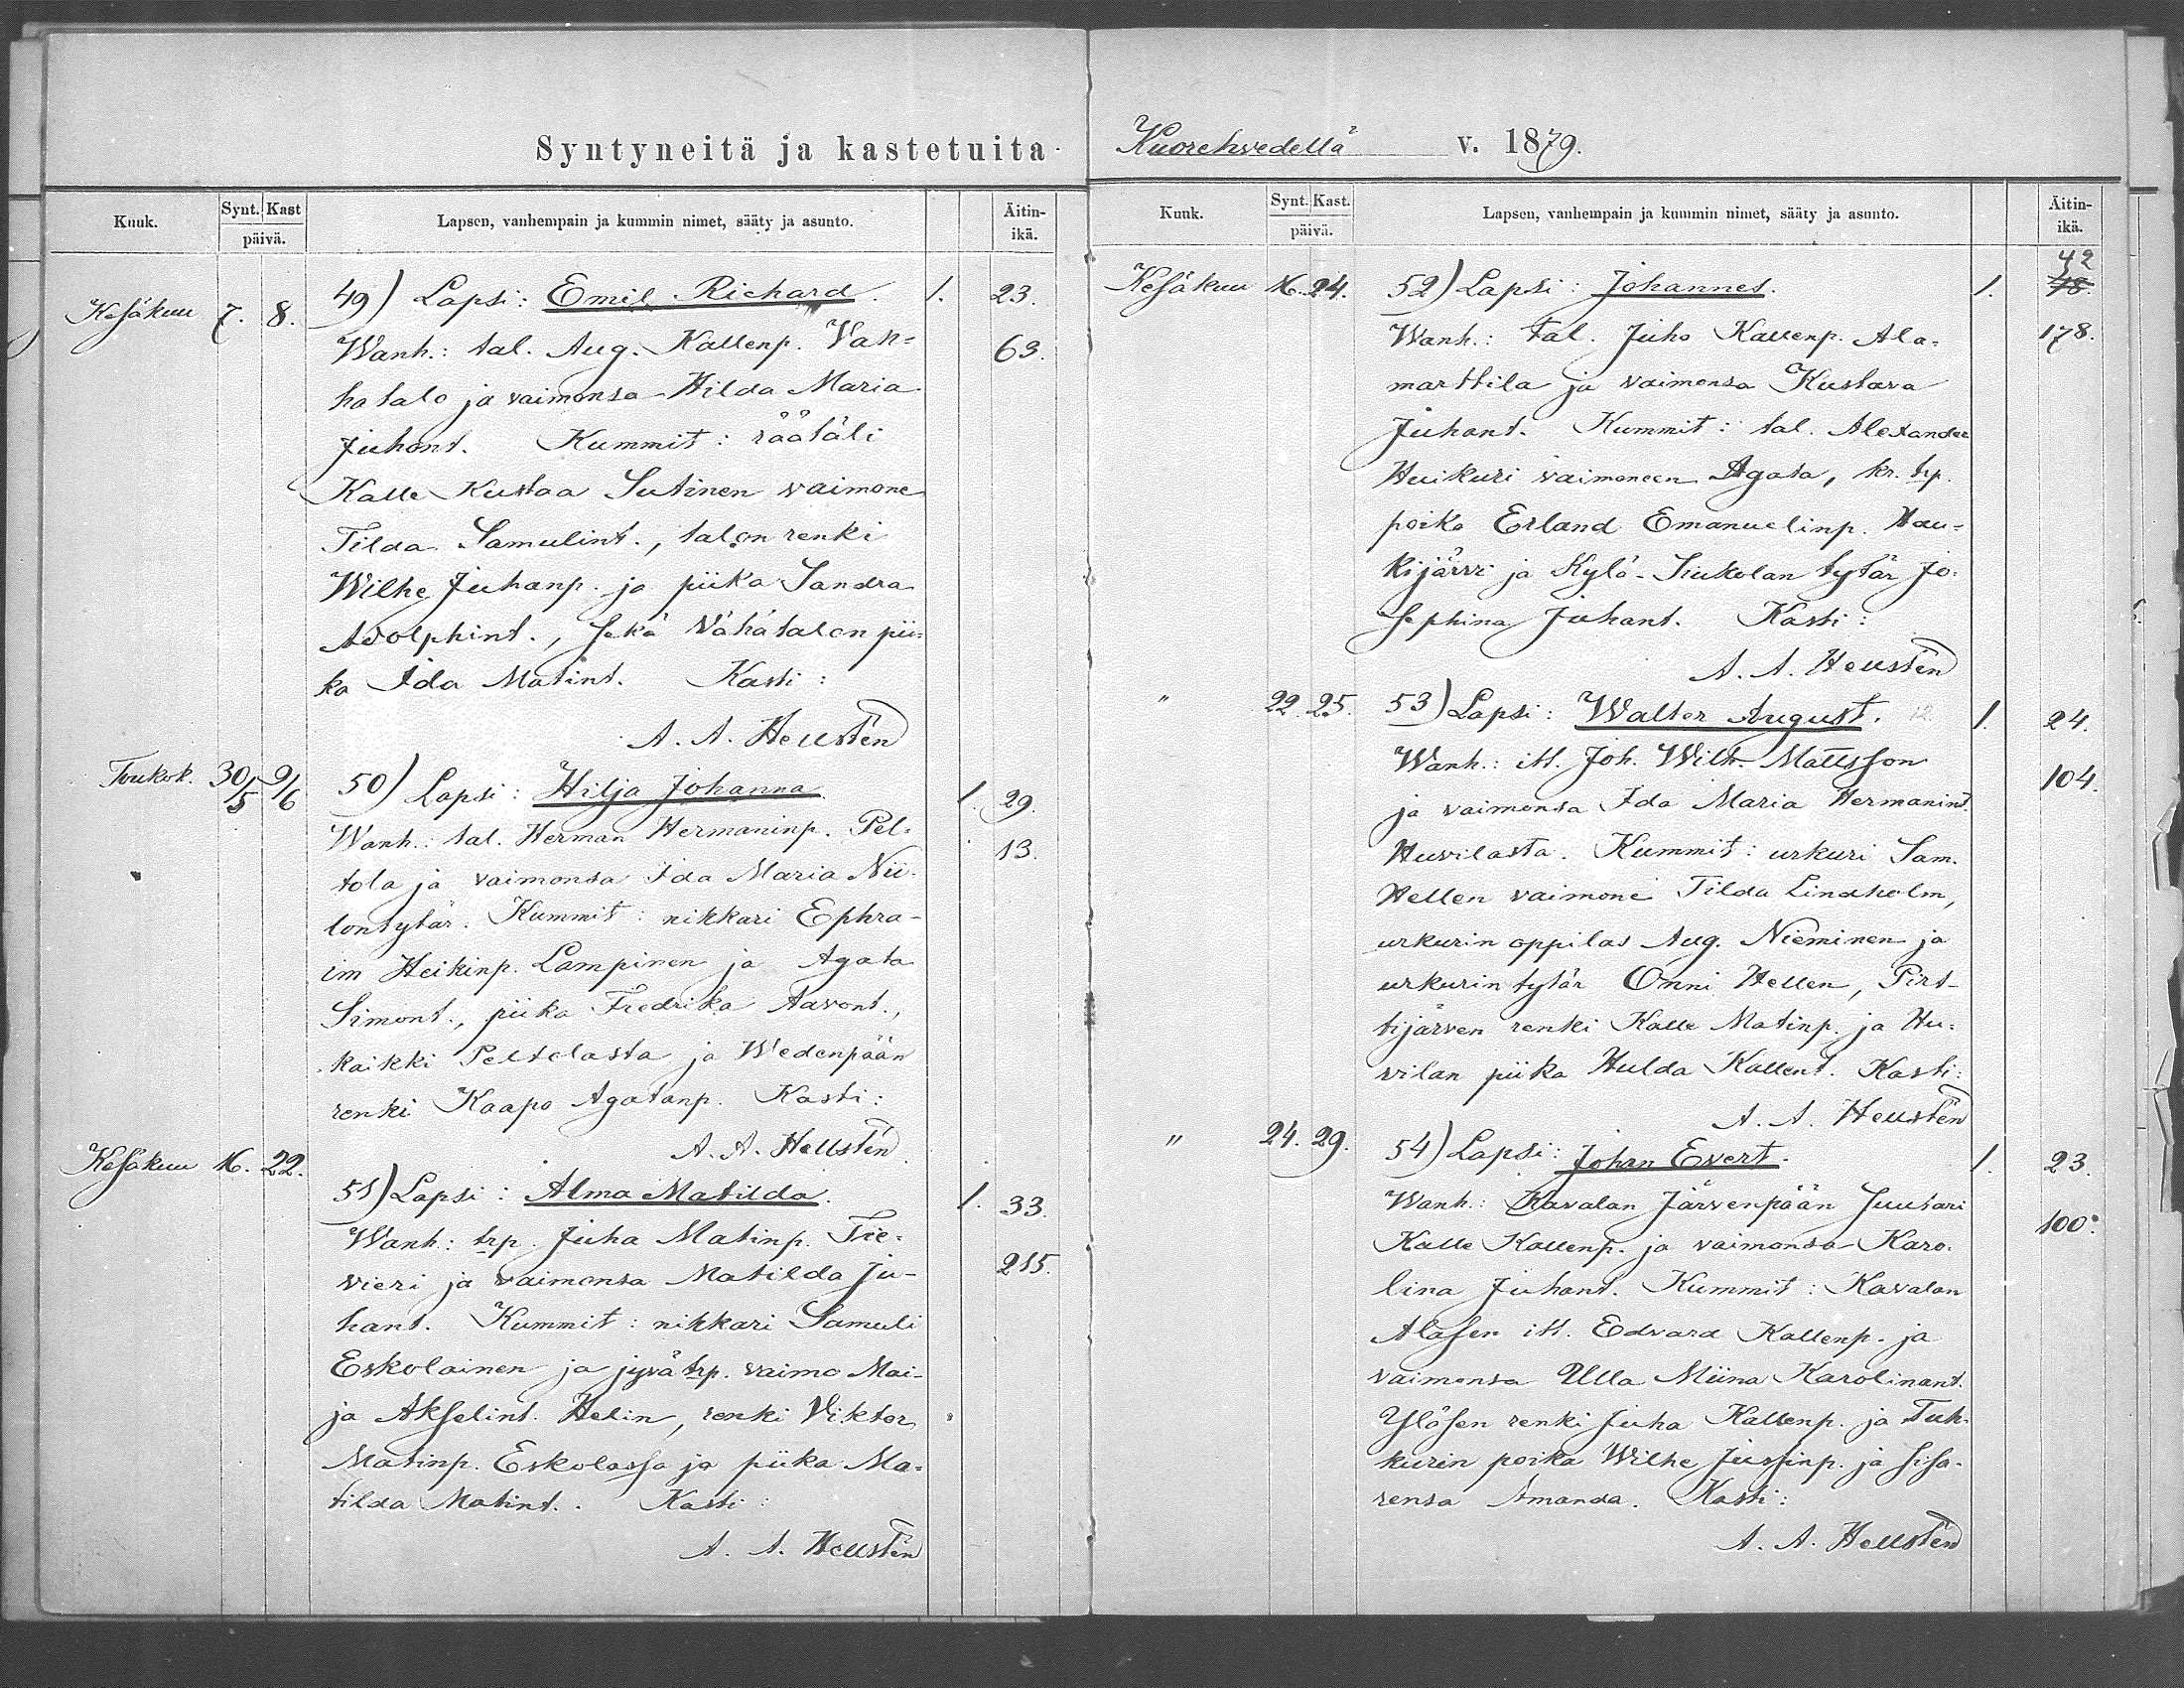 Syntyneitä ja kastetuita
Kuuk. Synt. Kast päivä. Lapsen, vanhempain ja kummin nimet, sääty ja asunto. Äitin-ikä.
Kesäkuu 7. 8. 49) Lapsi: Emil Richard. 1. 23.
Wanh.: tal. Aug. Kallenp. Van- 63.
hatalo ja vaimonsa Hilda Maria
Juhont. Kummit: räätäli
Kalle Kustaa Sutinen vaimone
Tilda Samulint., talon renki
Wilhe Juhanp. ja piika Sandra
Adolphint., sekä Vähätalon pii-
ka Ida Matint. Kasti:
A. A. Hellstén
Toukok. 30/5 9/6 50) Lapsi: Hilja Johanna. 1. 29.
Wanh.: tal. Herman Hermaninp. Pel- 13.
tola ja vaimonsa Ida Maria Nii-
lontytär. Kummit: nikkari Ephra-
im Heikinp. Lampinen ja Agata
Simont., piika Fredrika Aavont.,
kaikki Peltolasta ja Wedenpään
renki Kaapo Agatanp. Kasti:
A. A. Hellstén
Kesäkuu 16. 22. 51) Lapsi: Alma Matilda. 1. 33.
Wanh: trp. Juha Matinp. Tie-
vieri ja vaimonsa Matilda Ju- 215.
hant. Kummit: nikkari Samuli
Eskolainen ja jyvä trp. vaimo Mai-
ja Akselint. Helin, renki Viktor
Matinp. Eskolassa ja piika Ma-
tilda Matint. Kasti:
A. A. Hellstén
Kuorehvedellä v. 1879.
Kuuk. Synt. Kast. päivä. Lapsen, vanhempain ja kummin nimet, sääty ja asunto. Äitin-ikä.
42
Kesäkuu 16. 24. 52) Lapsi: Johannes. 1.
Wanh.: tal. Juho Kallenp. Ala- 178.
marttila ja vaimonsa Kustava
Juhant. Kummit: tal. Alexander
Huikuri vaimoneen Agata, kr. trp.
poika Erland Emanuelinp. Hau-
kijärvi ja Kylä-Siukolan tytär Jo-
sephina Juhant. Kasti:
A. A. Hellstén
" 22. 25. 53) Lapsi: Walter August. 1. 24.
Wanh.: itl. Joh. Wilh. Mattsson
ja vaimonsa Ida Maria Hermanint. 104.
Huvilasta. Kummit: urkuri Sam.
Hellen vaimone Tilda Lindholm,
urkurin oppilas Aug. Nieminen ja
urkurin tytär Onni Hellen, Pirt-
tijärven renki Kalle Matinp. ja Hu-
vilan piika Hulda Kallent. Kasti:
A. A. Hellstén
" 24. 29. 54) Lapsi: Johan Evert. 1. 23.
Wanh.: Kavalan Järvenpään Suutari
Kalle Kallenp. ja vaimonsa Karo- 100.
lina Juhant. Kummit: Kavalan
Alasen itl. Edvard Kallenp. ja
vaimonsa Ulla Miina Karolinant.
Yläsen renki Juha Kallenp. ja Tuh-
kurin poika Wilhe Jussinp. ja sisa-
rensa Amanda. Kasti:
A. A. Hellstén